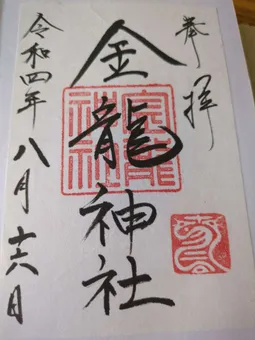 奉拝
金龍神社
令和四年八月十六日